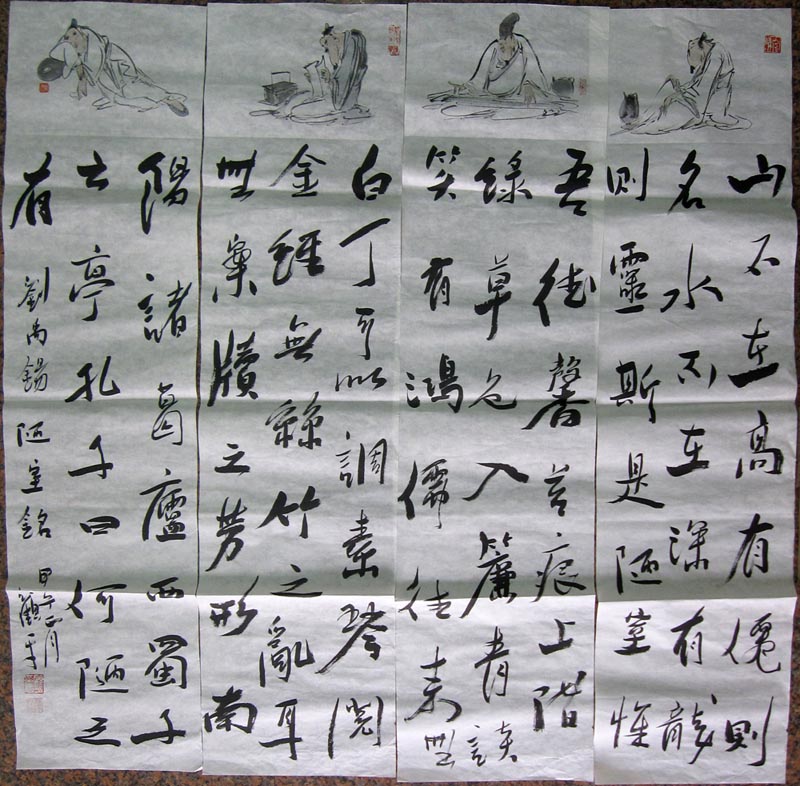 山不在高有僊則
名水不在深有龍
則靈斯是陋室惟
吾德馨苔痕上階
綠草色入簾青談
笑有鴻儒往来無
白丁可以調素琴閱
金經無絲竹之亂耳
無案牘之劳形南
陽諸葛廬西蜀子
云亭孔子曰何陋之
有
劉禹錫陋室銘 甲午